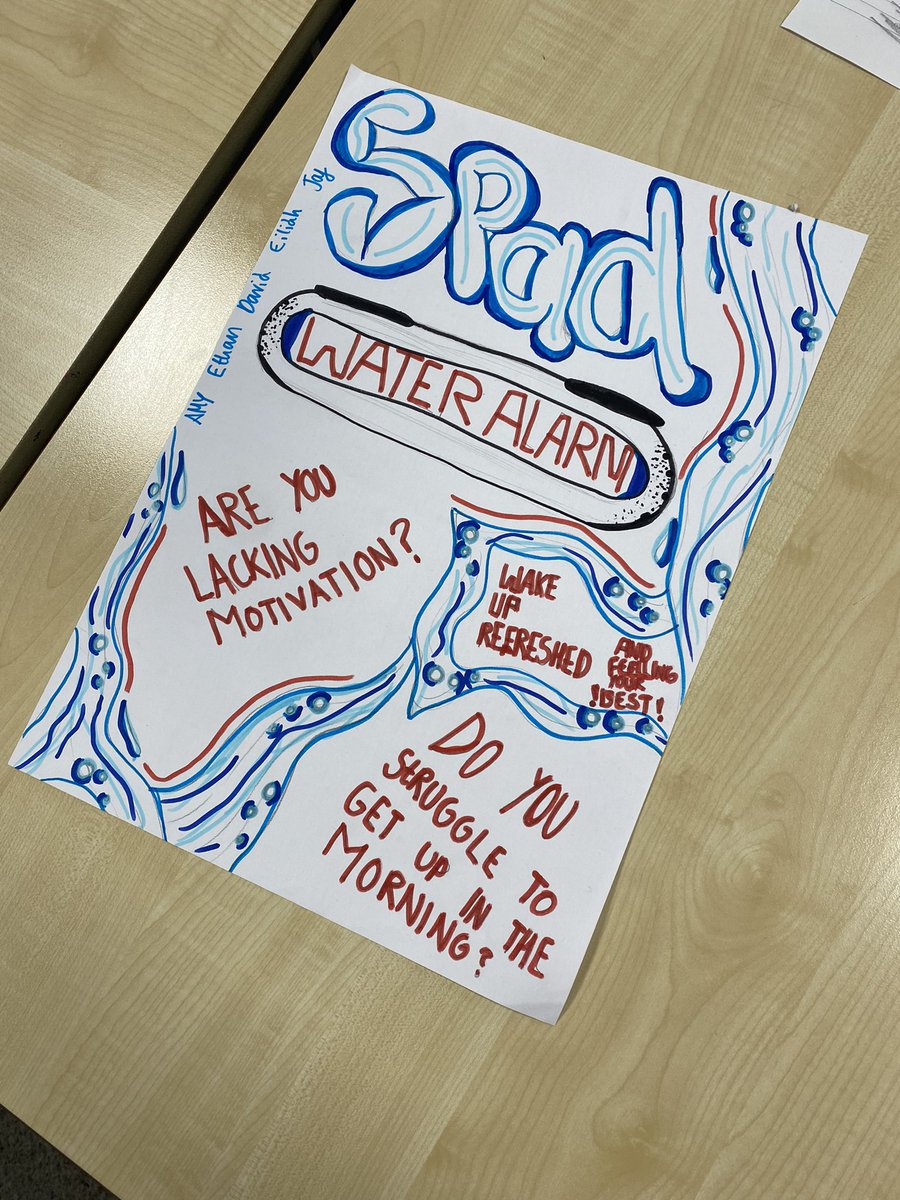 Spad
WATER ALARM
AMY Ethan David Eilidh Jay
ARE YOU
LACKING
MOTIVATION?
WAKE
UP
REFRESHED
AND
FEELING
YOUR
!BEST!
DO YOU
STRUGGLE TO
GET UP IN THE
MORNING?